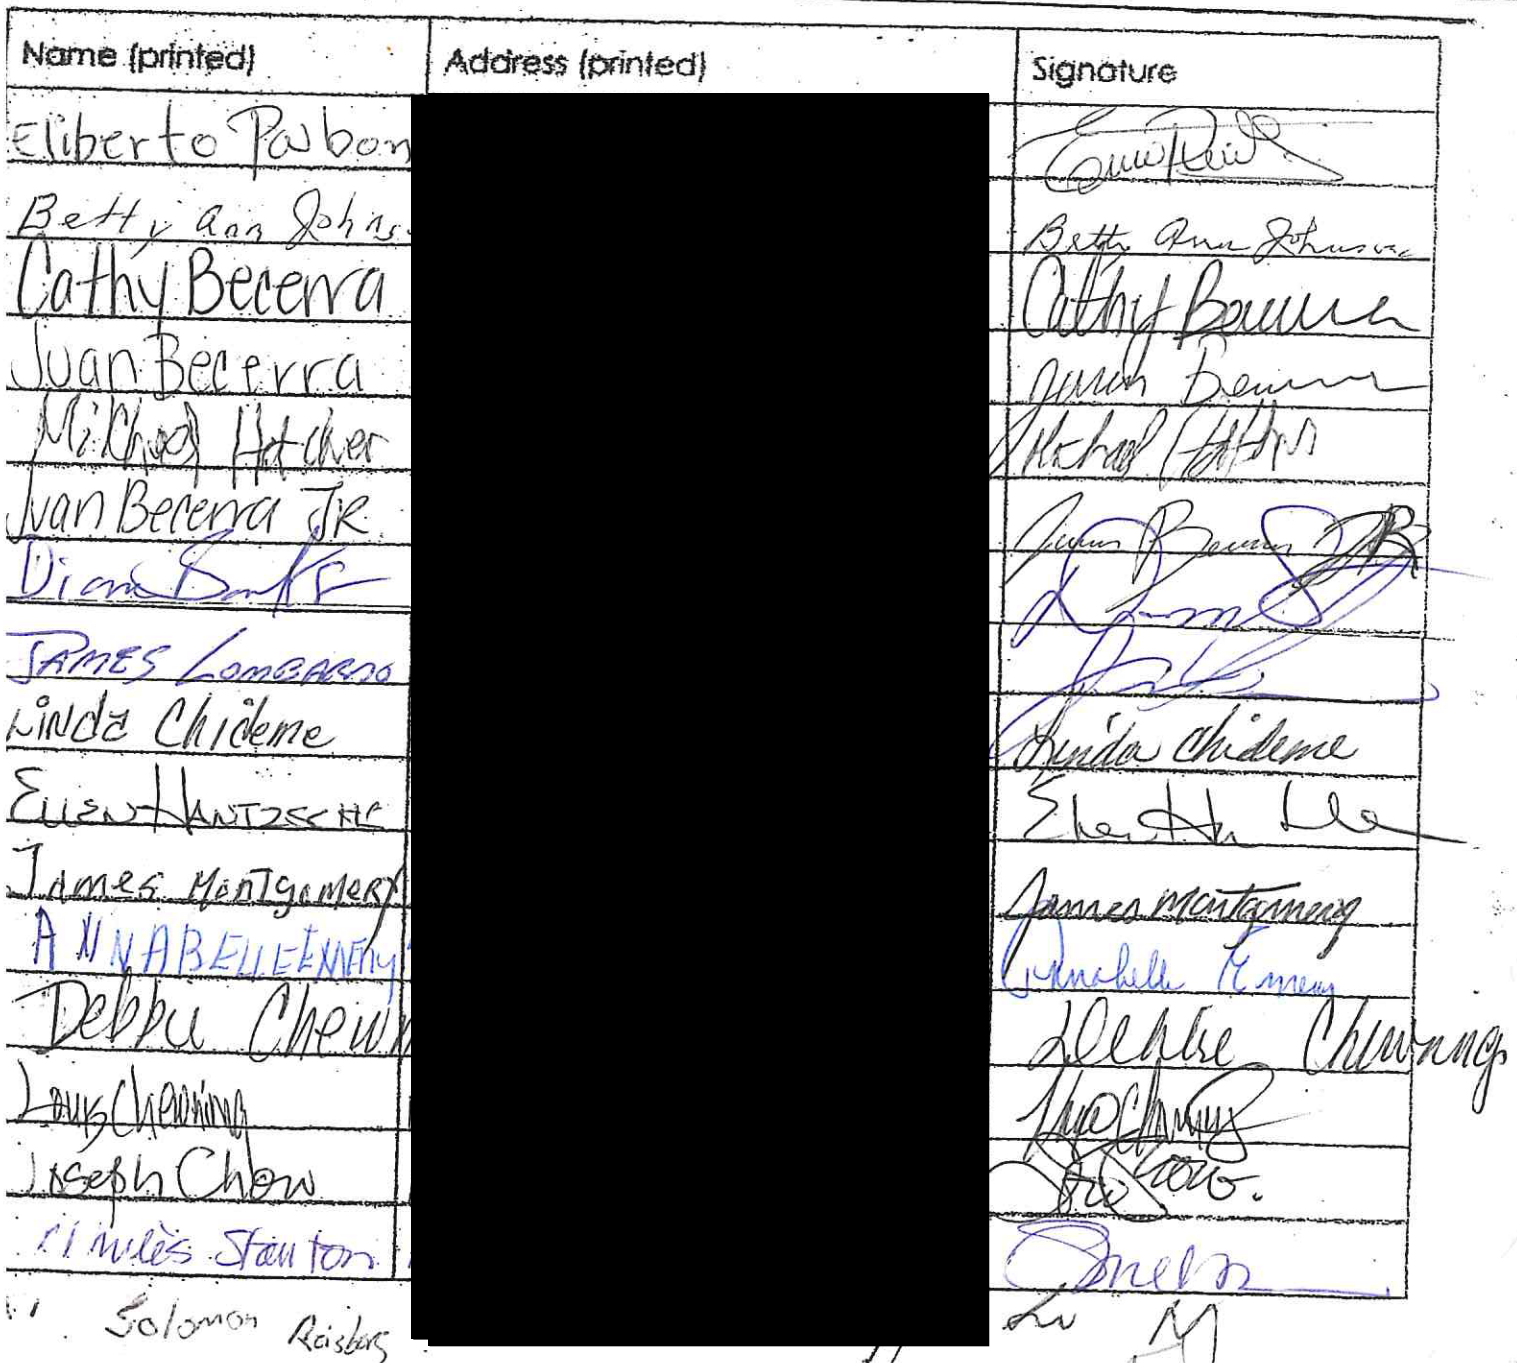 Name (printed) Address (printed) Signature
Eliberto Pabon
Betty Ann Johns Betty Ann Johnson
Cathy Becerra Cathy Becerra
Juan Becerra Juan Becerra
Michael Hatcher Michael Hatcher
Juan Becerra JR Juan Becerra JR
Diane Banks
JAMES LOMBARDO
Linda Chideme Linda Chideme
ELLEN HANTZSCHE
James Montgomery James Montgomery
ANNABELLE EMMERY Annabelle
Debbie Chewn Debbie Chewning
Louis Chewning
Joseph Chow Chow.
Stanton
Solomon Reisberg